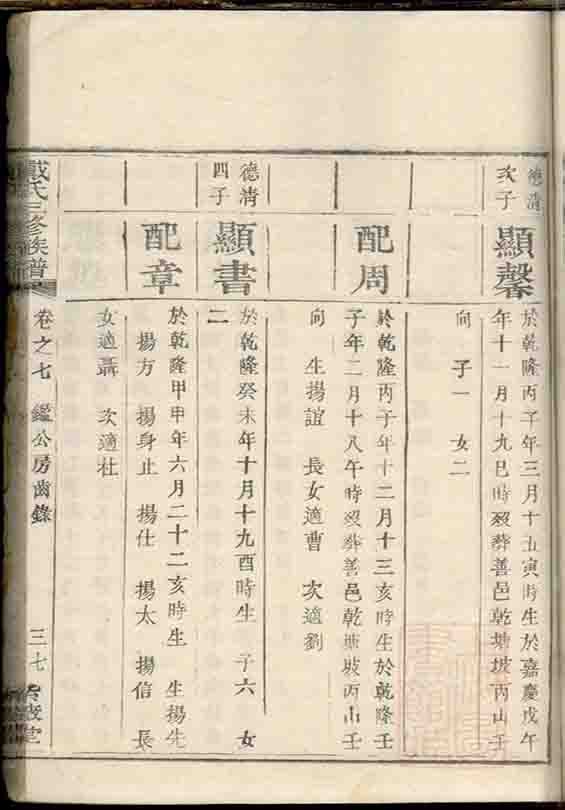 德清
次子
顯馨
於乾隆丙子年三月十五寅時生於嘉慶戊午
年十一月十九巳時歿葬善邑乾塘坡丙山壬
向 子一 女二
配周
於乾隆丙子年十二月十三亥時生於乾隆壬
子年二月十八午時歿葬善邑乾塘坡丙山壬
向 生揚誼 長女適曹 次適劉
德清
四子
顯書
於乾隆癸未年十月十九酉時生 子六 女
二
配章
於乾隆甲申年六月二十二亥時生 生揚先
揚方 揚身止 揚仕 揚太 揚信 長
女適聶 次適杜
戴氏三修族譜
卷之七 鑑公房齒錄
三七